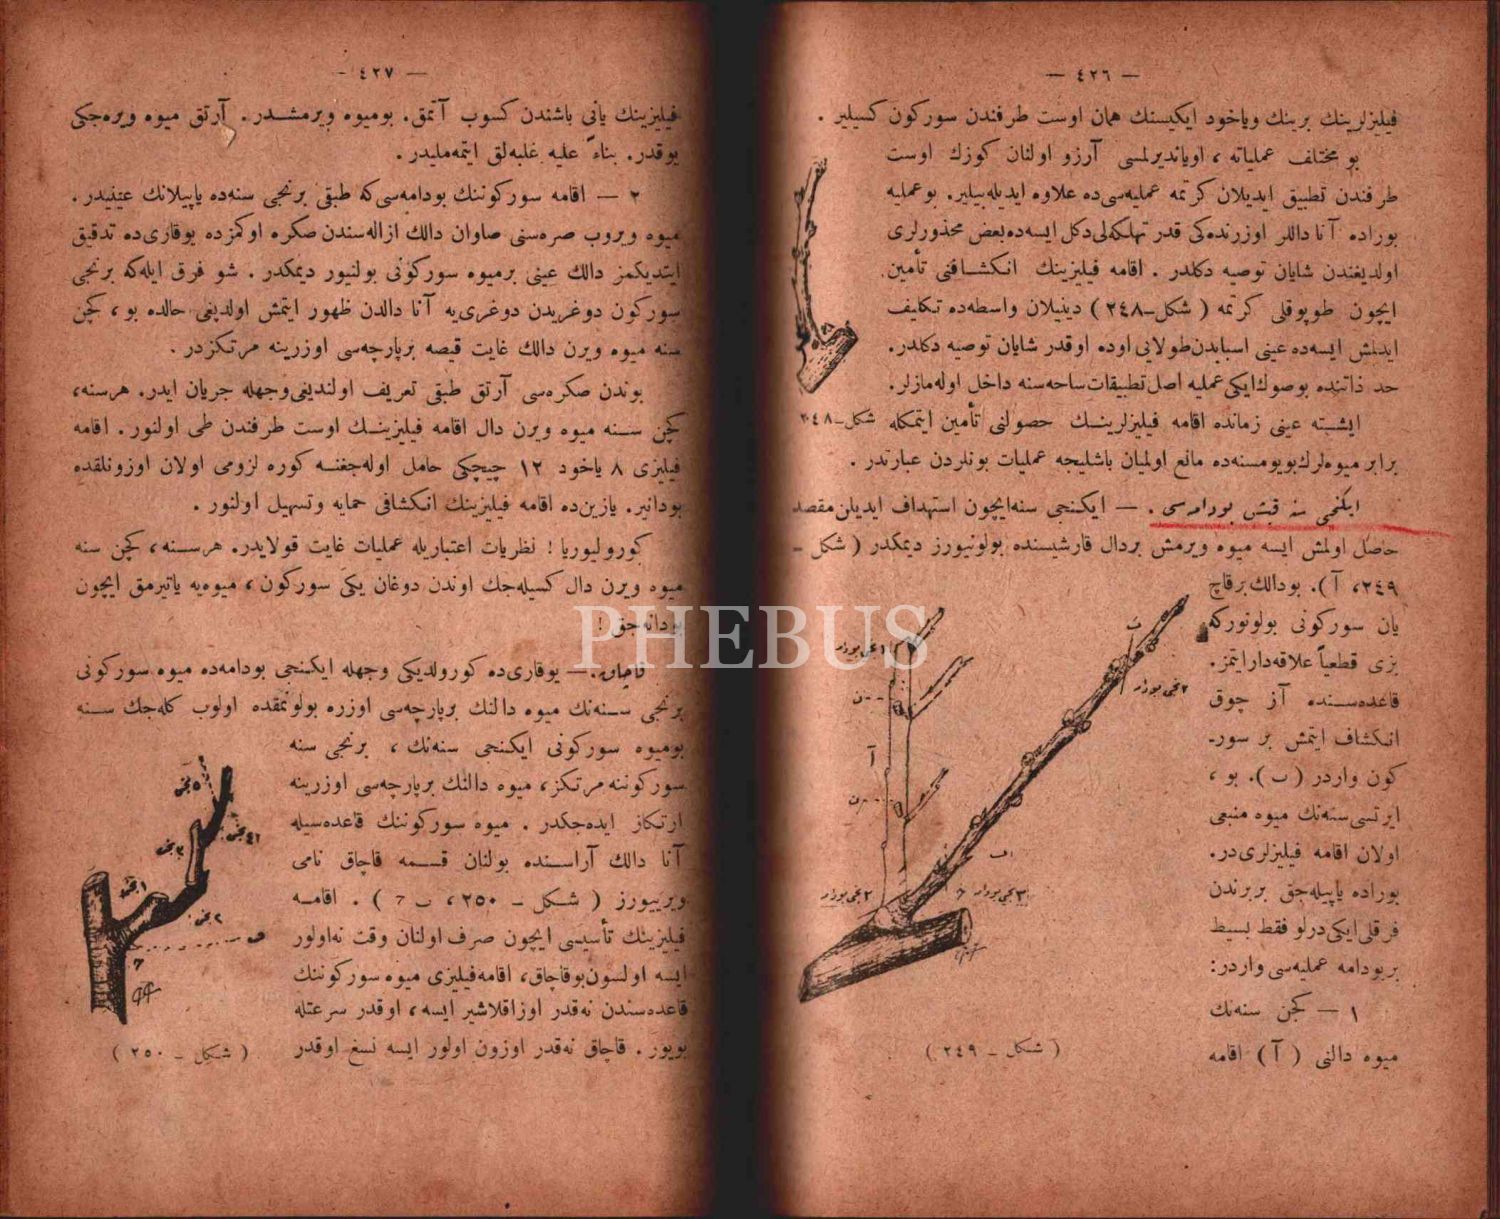 — ٤٢٦ —
فيليزلرينك برينك وياخود ايكيسنك همان اوست طرفندن سوركون كسيلير .
بو مختلف عملياته ، اوياندیرلمسی آرزو اولنان كوزك اوست
طرفندن تطبيق ايديلان كرتمه عمليه‌سی ده علاوه ايديله‌بيلير. بوعمليه
بوراده آنا داللر اوزرنده‌كی قدر تهلكه‌لی دكل ايسه‌ده بعض محذورلری
اولديغندن شايان توصيه دكلدر . اقامه فيليزينك انكشافنی تأمين
ايچون طوپوقلی كرتمه ( شكل_٢٤٨ ) دينيلان واسطه‌ده تكليف
ايدلمش ايسه‌ده عينی اسبابدن‌طولايی اوده اوقدر شايان توصيه دكلدر.
حد ذاتنده بوصوك‌ايكی عمليه اصل تطبيقات ساحه‌سنه داخل اوله‌مازلر.
ايشته عينی زمانده اقامه فيليزلرينك حصولنی تأمين ايتمكله
شكل_٢٤٨
برابر ميوه‌لرك بويومسنه‌ده مانع اولميان باشليجه عمليات بونلردن عبارتدر .
ايكنجی سنه قيش بودامه‌سی . — ايكنجی سنه‌ايچون استهداف ايديلن‌مقصد
حاصل اولمش ايسه ميوه ويرمش بردال قارشيسنده بولونيورز ديمكدر ( شكل _
٢٤٩، آ ). بودالك برقاچ
يان سوركونی بولونوركه
بزی قطعياً علاقه‌دارايتمز.
قاعده‌سنده آز چوق
انكشاف ايتمش بر سور-
كون واردر ( ب ). بو ،
ايرتسی سنه‌نك ميوه منبعی
اولان اقامه فيليزلری‌در.
بوراده ياپيله‌جق بربرندن
فرقلی ايكی درلو فقط بسيط
بربودامه عمليه‌سی واردر:
١ — كچن سنه‌نك
ميوه دالنی ( آ ) اقامه
آ
ب
( شكل _ ٢٤٩ )
— ٤٢٧ —
فيليزينك يانی باشندن كسوب آتمق. بوميوه ويرمشدر. آرتق ميوه ويره‌جكی
يوقدر. بناءً عليه غلبه‌لق ايتمه‌مليدر.
٢ — اقامه سوركوننك بودامه‌سی كه طبقی برنجی سنه‌ده ياپيلانك عينيدر.
ميوه ويروب صره‌سنی صاوان دالك ازاله‌سندن صكره اوكمزده يوقاری‌ده تدقيق
ايتديكمز دالك عينی برميوه سوركونی بولنيور ديمكدر . شو فرق ايله‌كه برنجی
سوركون دوغريدن دوغری‌يه آنا دالدن ظهور ايتمش اولديغی حالده بو ، كچن
سنه ميوه ويرن دالك غايت قيصه برپارچه‌سی اوزرينه مرتكزدر .
بوندن صكره‌سی آرتق طبقی تعريف اولنديغی‌وجهله جريان ايدر. هرسنه،
كچن سنه ميوه ويرن دال اقامه فيليزينك اوست طرفندن طی اولنور. اقامه
فيليزی ٨ ياخود ١٢ چيچكی حامل اوله‌جغنه كوره لزومی اولان اوزونلقده
بودانير. يازين‌ده اقامه فيليزينك انكشافی حمايه وتسهيل اولنور .
كورولیوریا ! نظريات اعتباريله عمليات غايت قولايدر. هرسنه، كچن سنه
ميوه ويرن دال كسيله‌جك اوندن دوغان يكی سوركون، ميوه‌يه ياتيرمق ايچون
بودانه‌جق !
قاچاق. — يوقاری‌ده كورولديكی وجهله ايكنجی بودامه‌ده ميوه سوركونی
برنجی سنه‌نك ميوه دالنك برپارچه‌سی اوزره بولونمقده اولوب كله‌جك سنه
بوميوه سوركونی ايكنجی سنه‌نك ، برنجی سنه
سوركوننه مرتكز، ميوه دالنك برپارچه‌سی اوزرينه
ارتكاز ايده‌جكدر . ميوه سوركوننك قاعده‌سيله
آنا دالك آراسنده بولنان قسمه قاچاق نامی
ويرييورز ( شكل _ ٢٥٠، ب ح ) . اقامه
فيليزينك تأسيسی ايچون صرف اولنان وقت نه‌اولور
ايسه اولسون‌بوقاچاق، اقامه‌فيليزی ميوه سوركوننك
قاعده‌سندن نه‌قدر اوزاقلاشير ايسه، اوقدر سرعتله
بويور . قاچاق نه‌قدر اوزون اولور ايسه نسغ اوقدر
( شكل _ ٢٥٠ )
PHEBUS